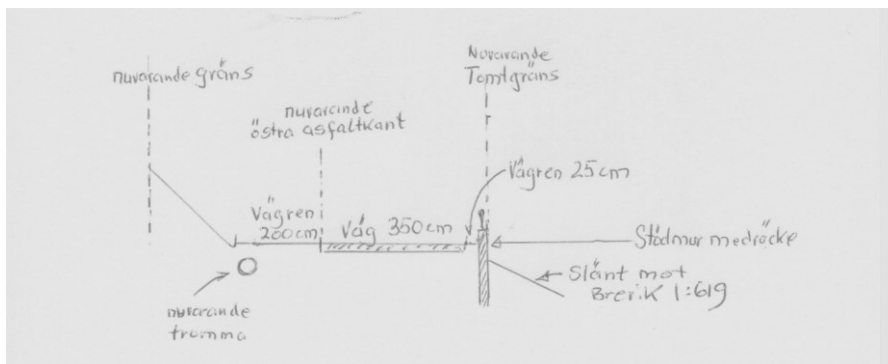 nuvarande gräns
Nuvarande
Tomtgräns
nuvarande
östra asfaltkant
Vägren 25cm
Vägren
200cm
Väg 350cm
Stödmur medräcke
Slänt mot
Brevik 1:619
nuvarande
trumma